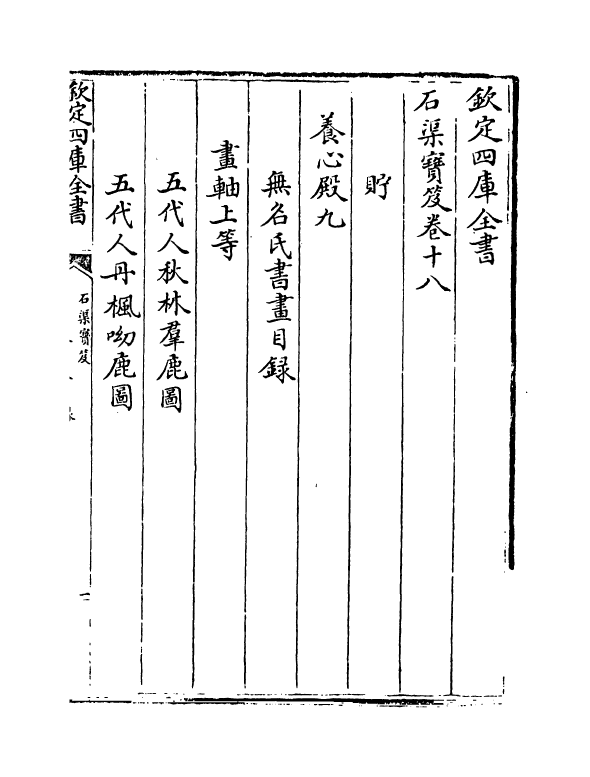 欽定四庫全書
石渠寶笈卷十八
貯
養心殿九
無名氏書畫目録
畫軸上等
五代人秋林羣鹿圖
五代人丹楓呦鹿圖
欽定四庫全書
石渠寶笈
一